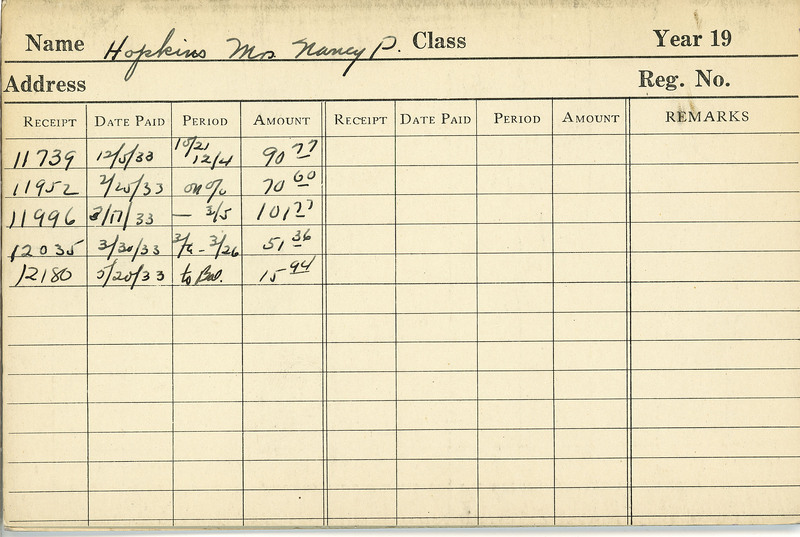 Name Hopkins Mrs Nancy P. Class Year 19
Address Reg. No.
RECEIPT DATE PAID PERIOD AMOUNT RECEIPT DATE PAID PERIOD AMOUNT REMARKS
11739 12/5/33 10/21 12/4 90 77
11952 2/20/33 on a/c 70 60
11996 3/17/33 — 3/5 101 77
12035 3/30/33 3/6 - 3/26 51 36
12180 5/20/33 to Bal. 15 94